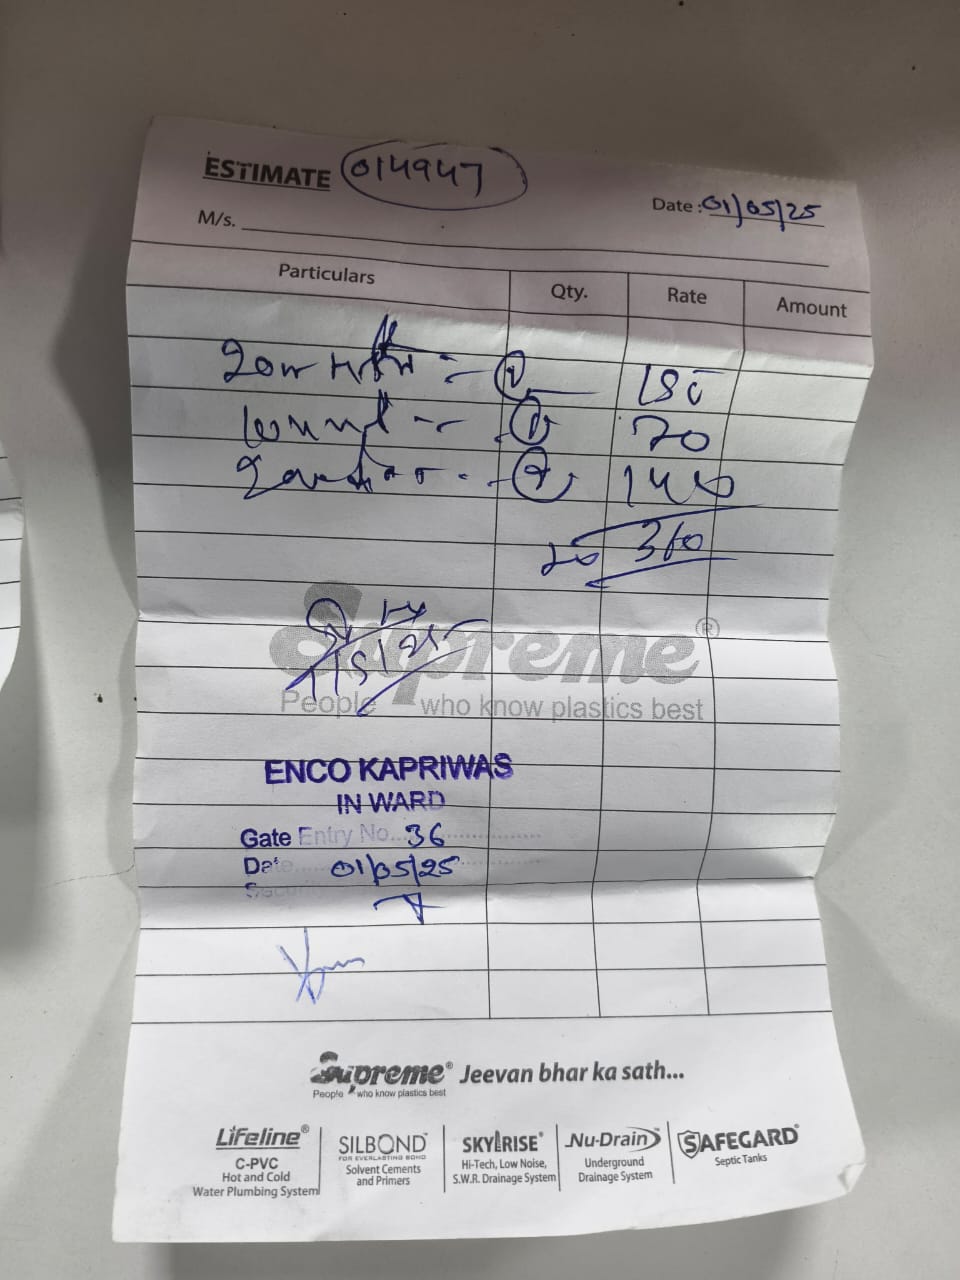 ESTIMATE 014947
Date : 01/05/25
M/s.
Particulars Qty. Rate Amount
150
70
140
360
Supreme®
People who know plastics best
ENCO KAPRIWAS
IN WARD
Gate Entry No... 36
Date... 01/05/25
Supreme® Jeevan bhar ka sath...
People who know plastics best
Lifeline®
C-PVC
Hot and Cold
Water Plumbing System
SILBOND
FOR EVERLASTING BOND
Solvent Cements
and Primers
SKYRISE®
Hi-Tech, Low Noise,
S.W.R. Drainage System
Nu-Drain
Underground
Drainage System
SAFEGARD®
Septic Tanks